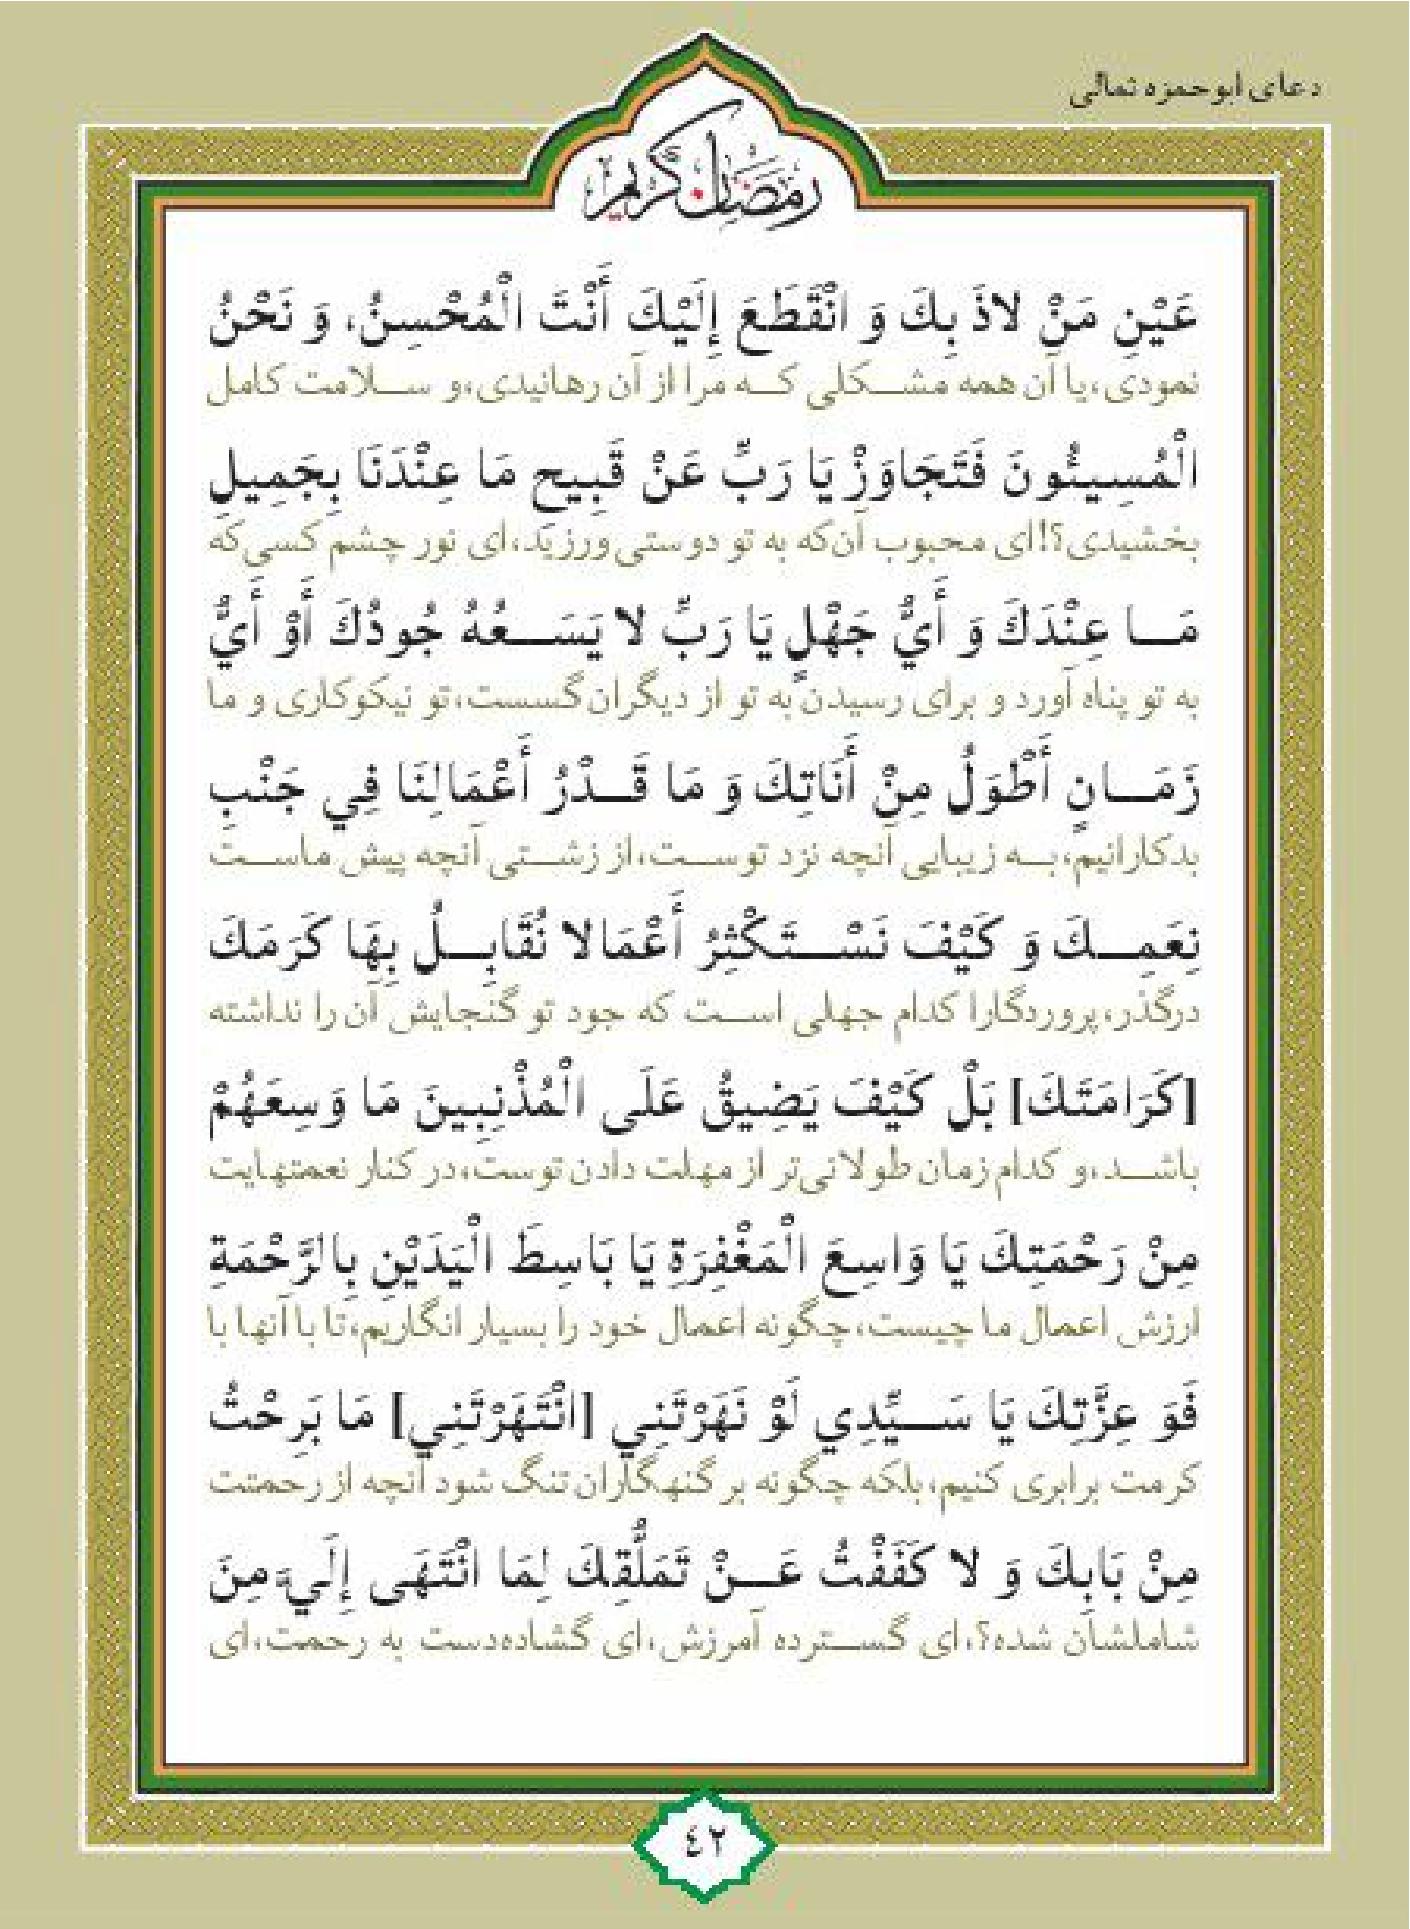 دعای ابوحمزه ثمالی
رمضان کریم
عَيْنِ مَنْ لاذَ بِكَ وَ انْقَطَعَ إِلَيْكَ أَنْتَ الْمُحْسِنُ، وَ نَحْنُ
نمودی، یا آن همه مشکلی که مرا از آن رهانیدی، و سلامت کامل
الْمُسِيئُونَ فَتَجَاوَزْ يَا رَبِّ عَنْ قَبِيحِ مَا عِنْدَنَا بِجَمِيلِ
بخشیدی؟! ای محبوب آن‌که به تو دوستی ورزید، ای نور چشم کسی‌که
مَا عِنْدَكَ وَ أَيُّ جَهْلٍ يَا رَبِّ لا يَسَعُهُ جُودُكَ أَوْ أَيُّ
به تو پناه آورد و برای رسیدن به تو از دیگران گسست، تو نیکوکاری و ما
زَمَانٍ أَطْوَلُ مِنْ أَنَاتِكَ وَ مَا قَدْرُ أَعْمَالِنَا فِي جَنْبِ
بدکارانیم، به زیبایی آنچه نزد توست، از زشتی آنچه پیش ماست
نِعَمِكَ وَ كَيْفَ نَسْتَكْثِرُ أَعْمَالا نُقَابِلُ بِهَا كَرَمَكَ
درگذر، پروردگارا کدام جهلی است که جود تو گنجایش آن را نداشته
[كَرَامَتَكَ] بَلْ كَيْفَ يَضِيقُ عَلَى الْمُذْنِبِينَ مَا وَسِعَهُمْ
باشد، و کدام زمان طولانی‌تر از مهلت دادن توست، در کنار نعمتهایت
مِنْ رَحْمَتِكَ يَا وَاسِعَ الْمَغْفِرَةِ يَا بَاسِطَ الْيَدَيْنِ بِالرَّحْمَةِ
ارزش اعمال ما چیست، چگونه اعمال خود را بسیار انگاریم، تا با آنها با
فَوَ عِزَّتِكَ يَا سَيِّدِي لَوْ نَهَرْتَنِي [انْتَهَرْتَنِي] مَا بَرِحْتُ
کرمت برابری کنیم، بلکه چگونه بر گنهکاران تنگ شود آنچه از رحمتت
مِنْ بَابِكَ وَ لا كَفَفْتُ عَنْ تَمَلُّقِكَ لِمَا انْتَهَى إِلَيَّ مِنَ
شاملشان شده؟، ای گسترده آمرزش، ای گشاده‌دست به رحمت، ای
٤٢